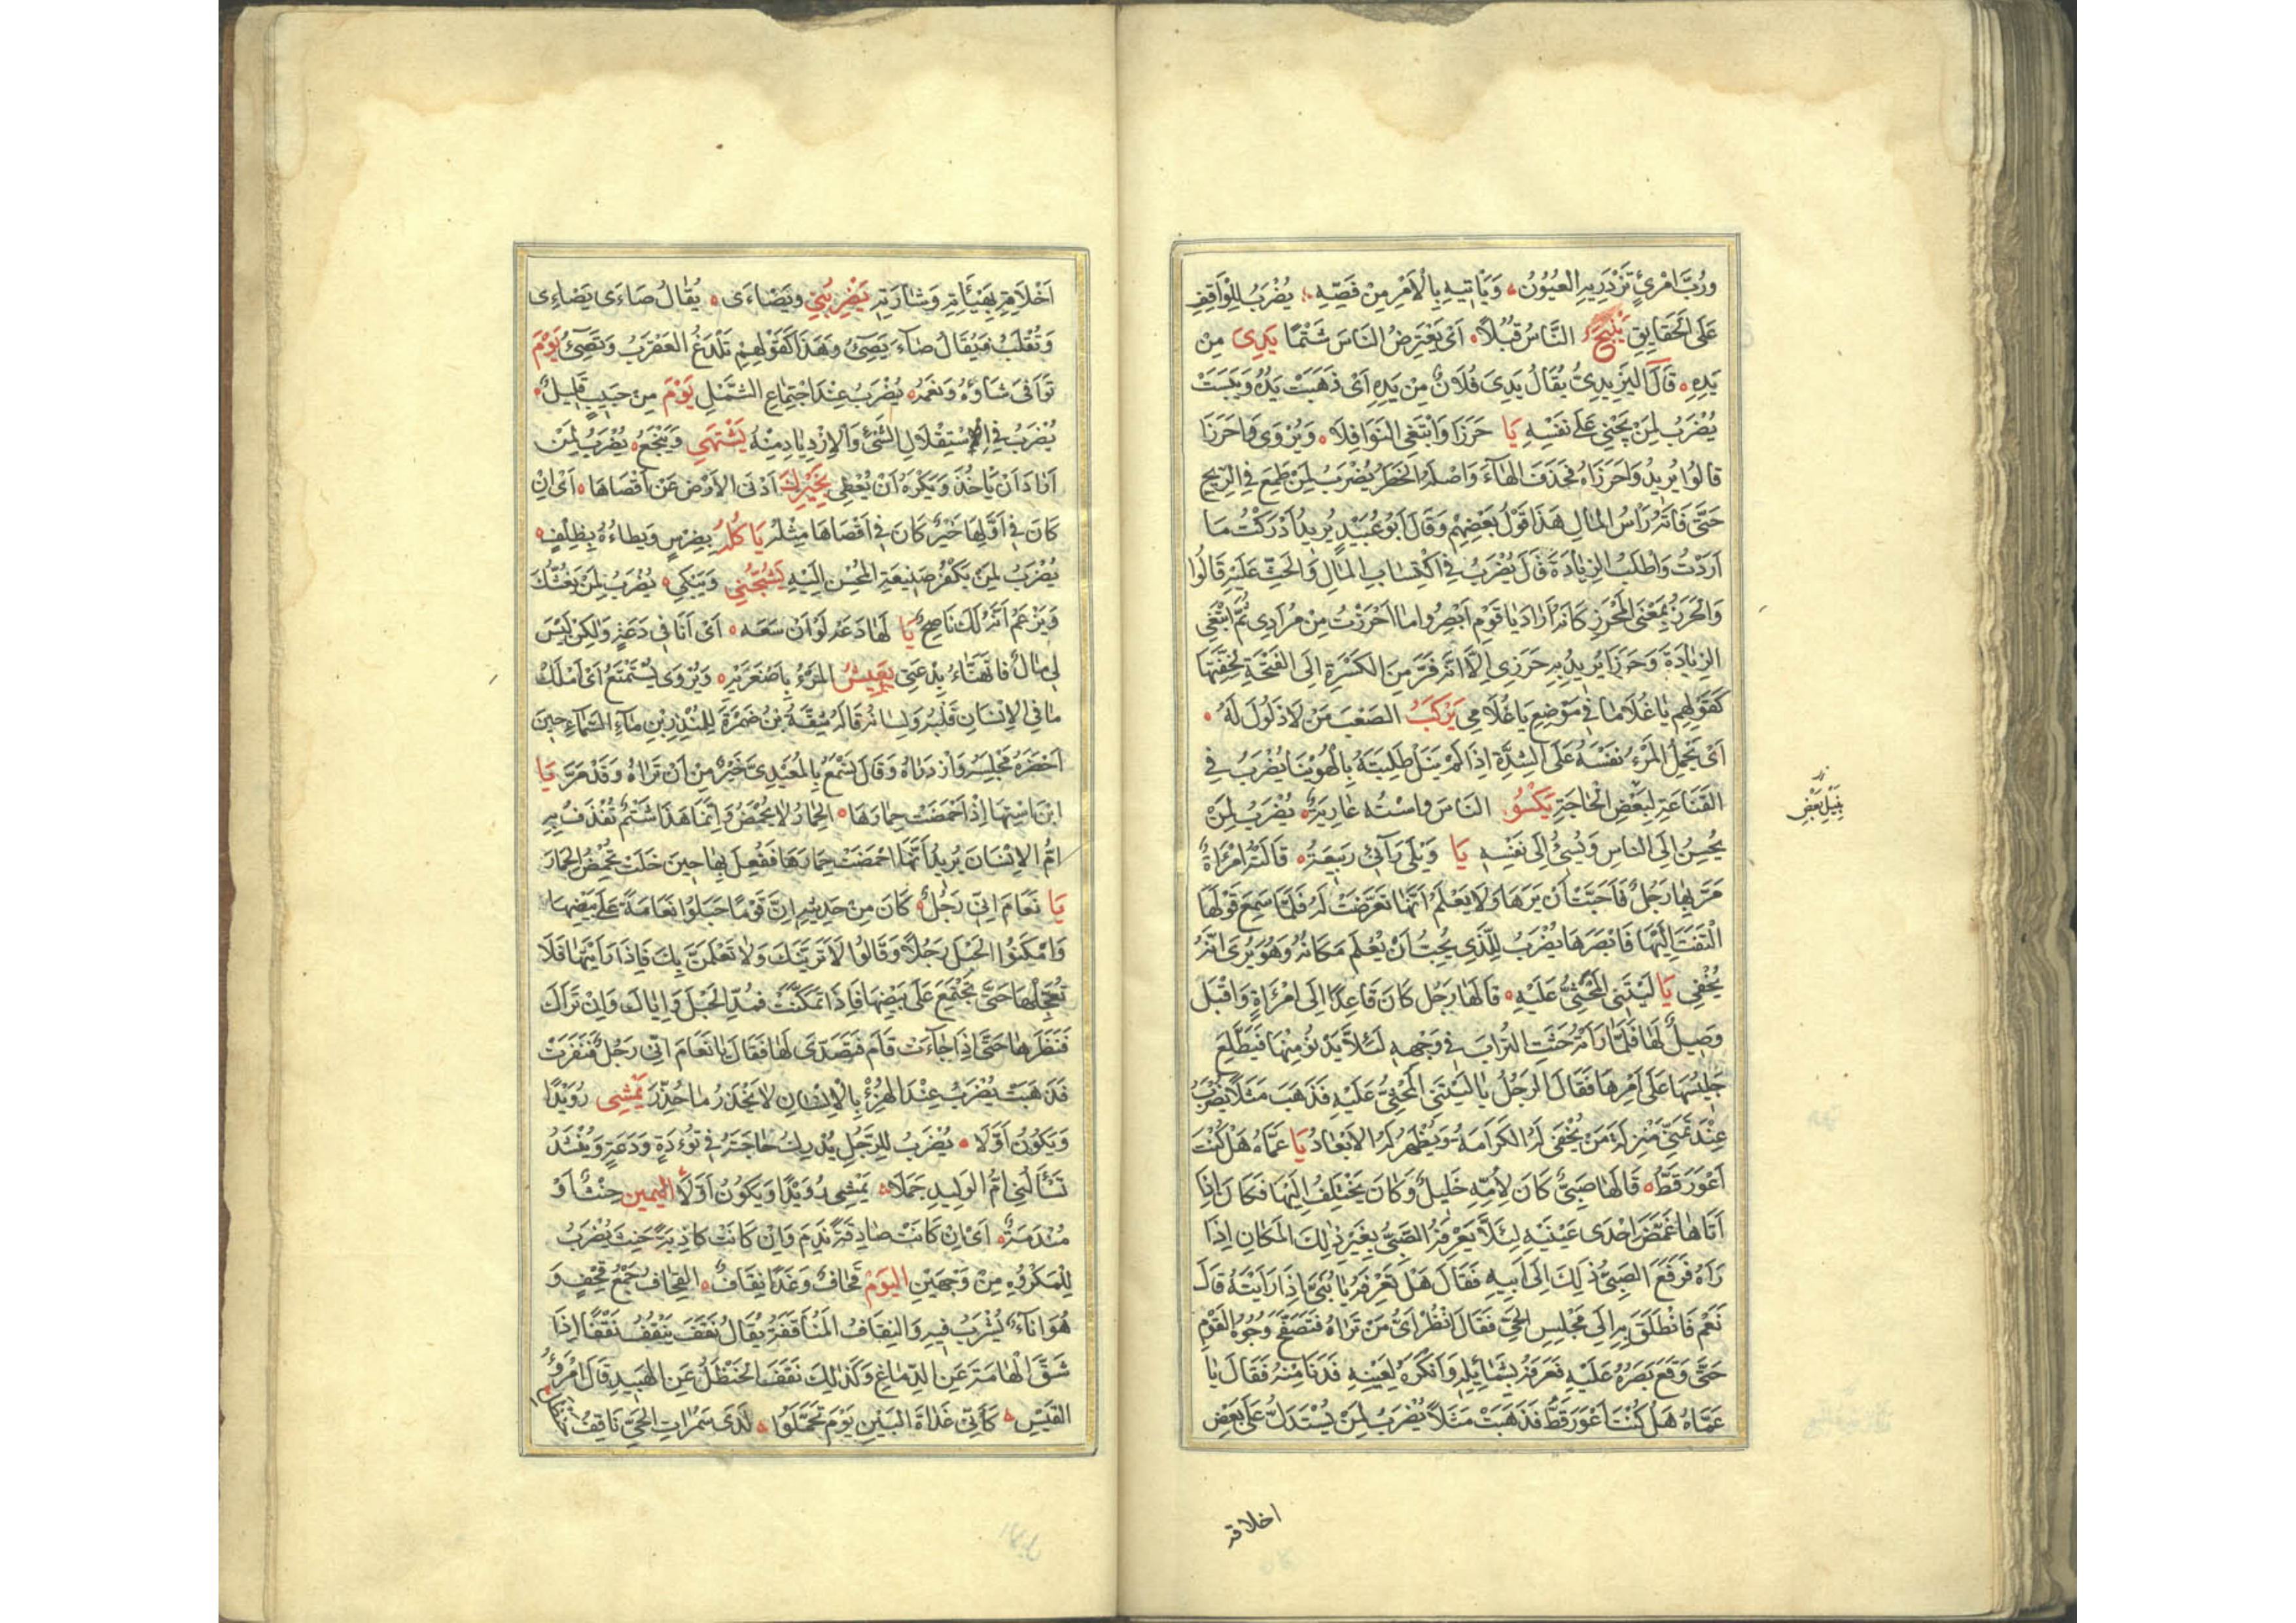 ورُبَّ امْرِئٍ تَزْدَرِيهِ العُيُونُ وَيَأْتِيهِ بِالْأَمْرِ مِنْ فَصِّهِ يُضْرَبُ لِلْوَاقِفِ
عَلَى الْحَقَايِقِ يَنْبَحُ النَّاسَ قُبُلًا أَىْ يَعْتَرِضُ النَاسَ شَتْمًا يَدِىَ مِنْ
يَدِهِ قَالَ اليَزِيدِيُّ يُقَالُ يَدِىَ فُلَانٌ مِنْ يَدِهِ أَىْ ذَهَبَتْ يَدُهُ وَيَبِسَتْ
يُضْرَبُ لِمَنْ يَجْنِي عَلَى نَفْسِهِ يَا حَرَزَا وَابْتَغِى النَوَافِلَا وَيُرْوَى وَاحَرَزَا
قَالُوا يُرِيدُ وَاحَرَزَاهُ فَحَذَفَ الهَآءَ وَاصْلُهُ الخَطَرُ يُضْرَبُ لِمَنْ طَمِعَ فِي الرِبْحِ
حَتَّى فَاتَهُ رَاسُ المَالِ هَذَا قَوْلُ بَعْضِهِمْ وَقَالَ أَبُو عُبَيْدٍ يُرِيدُ أَدْرَكْتُ مَا
اَرَدْتُ وَاَطْلُبُ الزِيَادَةَ قَالَ يُضْرَبُ فِي اكْتِسَابِ المَالِ وَالحَثِّ عَلَيْهِ قَالُوا
وَالحَرَزُ بِمَعْنَى المُحْرَزِ كَانَهُ اَرَادَ يَا قَوْمِ اَبْصِرُوا مَا احْرَزْتُ مِنْ مُرَادِى ثُمَّ ابْتَغِى
الزِيَادَةَ وَحَرَزَا يُرِيدُ بِهِ حَرَزِى اِلَّا انَّهُ فَرَّ مِنَ الكَسْرَةِ اِلَى الفَتْحَةِ لِخِفَّتِهَا
كَقَوْلِهِم يَا غُلَامَا فِي مَوْضِعِ يَا غُلَامِى يَرْكَبُ الصَعْبَ مَنْ لَا ذَلُولَ لَهُ
اَىْ يَحْمِلُ المَرْءُ نَفْسَهُ عَلَى الشِدَّةِ اِذَا لَمْ يَنَلْ طَلِبَتَهُ بِالْهُوَيْنَا يُضْرَبُ فِي
القَنَاعَةِ لِبَعْضِ الْحَاجَةِ يَكْسُو النَاسَ وَاسْتُهُ عَارِيَةٌ يُضْرَبُ لِمَنْ
يُحْسِنُ اِلَى النَاسِ وَيُسِئُ اِلَى نَفْسِهِ يَا وَيْلَى رَآنِى رَبِيعَةُ قَالَتْهُ امْرَاَةٌ
مَرَّ بِهَا رَجُلٌ فَاَحَبَّتْ اَنْ يَرَهَا وَلَا يَعْلَمُ اَنَّهَا تَعَرَّضَتْ لَهُ فَلَمَّا سَمِعَ قَوْلَهَا
الْتَفَتَ اِلَيْهَا فَابْصَرَهَا يُضْرَبُ لِلَّذِى يُحِبُّ اَنْ يُعْلَمَ مَكَانُهُ وَهُوَ يُرِى انَّهُ
يُخْفِى يَا لَيْتَنِى المُحْثِىُّ عَلَيْهِ قَالَهَا رَجُلٌ كَانَ قَاعِدًا اِلَى امْرَاَةٍ وَاقْبَلَ
وَصِيلٌ لَهَا فَلَمَّا رَاَتْهُ حَثَتِ التُرَابَ فِي وَجْهِهِ لَئَلَّا يَدْنُوَ مِنْهَا فَيَطَّلِعَ
جَلِيسُهَا عَلَى اَمْرِهَا فَقَالَ الرَجُلُ يَا لَيْتَنِى المُحْثِىُّ عَلَيْهِ فَذَهَبَ مَثَلًا يُضْرَبُ
عِنْدَ تَمَنِّى مَنْزِلَةِ مَنْ يُخْفَى لَهُ الكَرَامَةُ وَيُظْهَرُ لَهُ الاِبْعَادُ يَا عَمَّاهُ هَلْ كُنْتَ
اَعْوَرَ قَطُّ قَالَهَا صَبِىٌّ كَانَ لِاُمِّهِ خَلِيلٌ وَكَانَ يَخْتَلِفُ اِلَيْهَا فَكَانَ اِذَا
اَتَاهَا غَمَّضَ اِحْدَى عَيْنَيْهِ لِئَلَّا يَعْرِفَهُ الصَبِىُّ بِغَيْرِ ذَلِكَ المَكَانِ اِذَا
رَآهُ فَرَفَعَ الصَبِىُّ ذَلِكَ اِلَى اَبِيهِ فَقَالَ هَلْ تَعْرِفُهُ يَا بُنَىَّ اِذَا رَاَيْتَهُ قَالَ
نَعَمْ فَانْطَلَقَ بِهِ اِلَى مَجْلِسِ الحَىِّ فَقَالَ انْظُرْ اَىَّ مَنْ تَرَاهُ فَتَصَفَّحَ وُجُوهَ القَوْمِ
حَتَّى وَقَعَ بَصَرُهُ عَلَيْهِ فَعَرَفَهُ بِشَمَائِلِهِ وَاَنْكَرَهُ لِعَيْنِهِ فَدَنَا مِنْهُ فَقَالَ يَا
عَمَّاهُ هَلْ كُنْتَ اَعْوَرَ قَطُّ فَذَهَبَتْ مَثَلًا يُضْرَبُ لِمَنْ يُسْتَدَلُّ عَلَى بَعْضِ
بِنَيْلِ بَعْضِ
اخلاقه
اَخْلَاقِهِ بِهَيْئَاتِهِ وَشَارَتِهِ يَضْرِبُنِي وَيَصْاءَى يُقَالُ صَاءَى يَصَاءِى
وَتُقْلَبُ فَيُقَالُ صَاءَ يَصِئُ وَهَذَا كَقَوْلِهِمْ تَلْدَغُ العَقْرَبُ وَتَصِئُ يَوْمَ
تَوَافَى شَاوُهُ وَنَعَمُهُ يُضْرَبُ عِنْدَ اجْتِمَاعِ الشَمْلِ يَوْمٌ مِنْ حَبِيبٍ قَلِيلٌ
يُضْرَبُ فِي اسْتِقْلَالِ الشَئْ وَالاِزْدِيَادِ مِنْهُ يَشْتَهِى وَيَنْجَعُ يُضْرَبُ لِمَنْ
اَرَادَ اَنْ يَاْخُذَ وَيَكْرَهُ اَنْ يُعْطِى يُخْبِرُكَ اَدْنَى الاَرْضِ عَنْ اَقْصَاهَا اَىْ اِنْ
كَانَ فِي اَوَّلِهَا خَيْرٌ كَانَ فِي اَقْصَاهَا مِثْلُهُ يَاكُلُهُ بِضِرْسٍ وَيَطَاءُهُ بِظِلْفٍ
يُضْرَبُ لِمَنْ يَكْفُرُ صَنِيعَةَ المُحْسِنِ اِلَيْهِ يَشُجُّنِي وَيَبْكِى يُضْرَبُ لِمَنْ يَغُشُّكَ
وَيَزْعَمُ اَنَّهُ لَكَ نَاصِحٌ يَا لَهَا دَعَةً لَوْ اَنَّ سَعَه اَىْ اَنَا فِي دَعَةٍ وَلَكِنْ لَيْسَ
لِى مَالٌ فَاتَهَنَّاءُ بِدَعَتِى يَعِيشُ المَرْءُ بِاَصْغَرَيْهِ وَيُرْوَى يَسْتَمْتِعُ اَىْ اَمْلَكُ
مَا فِي الاِنْسَانِ قَلْبُهُ وَلِسَانُهُ قَالَهُ شِقَّةُ بْنُ ضَمْرَةَ لِلْمُنْذِرِ بْنِ مَآءِ السَمَآءِ حِينَ
اَحْضَرَهُ مَجْلِسَهُ وَازْدَرَاهُ وَقَالَ تَسْمَعُ بِالمُعَيْدِىِّ خَيْرٌ مِنْ اَنْ تَرَاهُ وَقَدْ مَرَّ يَا
ابْنَ اسْتِهَا اِذَا اَحْمَضَتْ حِمَارَهَا الحِمَارُ لَا يُحْمِضُ وَاِنَّمَا هَذَا شَتْمٌ تُقْذَفُ بِهِ
امُّ الاِنْسَانِ يُرِيدُ اَنَّهَا اَحْمَضَتْ حِمَارَهَا فَفُعِلَ بِهَا حِينَ خَلَتْ تُحْمِضُ الحِمَارَ
يَا نَعَامَ اِنِّى رَجُلٌ كَانَ مِنْ حَدِيثِهِ اِنَّ قَوْمًا حَبَلُوا نَعَامَةً عَلَى بَيْضِهَا
وَامْكَنُوا الحَبْلَ رَجُلًا وَقَالُوا لَا تَرَيَنَّكَ وَلَا تَعْلَمَنَّ بِكَ فَاِذَا رَاَيْتَهَا فَلَا
تُعَجِّلْهَا حَتَّى تَجْتَمِعَ عَلَى بَيْضِهَا فَاِذَا تَمَكَّنَتْ فَمُدَّ الحَبْلَ وَاِيَّاكَ وَاِنْ تَرَاكَ
فَنَظَرَهَا حَتَّى اِذَا جَاءَتْ قَامَ فَتَصَدَّى لَهَا فَقَالَ يَا نَعَامَ اِنِّى رَجُلٌ فَنَفَرَتْ
فَذَهَبَتْ يُضْرَبُ عِنْدَ الهُزْءِ بِالاِنْسَانِ لَا يَحْذَرُ مَا حُذِّرَ يَمْشِى رُوَيْدًا
وَيَكُونُ اَوَّلَا يُضْرَبُ لِلرَجُلِ يُدْرِكُ حَاجَتَهُ فِي تُؤَدَةٍ وَدَعَةٍ وَيُنْشَدُ
تَسْاَلُنِى امُّ الوَلِيدِ جَمَلًا يَمْشِى رُوَيْدًا وَيَكُونُ اَوَّلَا اليَمِين حِنْثٌ اَوْ
مَنْدَمَةٌ اَىْ اِنْ كَانَتْ صَادِقَةً نَدِمَ وَاِنْ كَانَتْ كَاذِبَةً حَنِثَ يُضْرَبُ
لِلْمَكْرُوهِ مِنْ وَجْهَيْنِ اليَوْمَ قِحَافٌ وَغَدًا نِقَافٌ القِحَافُ جَمْعُ قِحْفٍ وَ
هُوَ اِنَآءٌ يُشْرَبُ فِيهِ وَالنِقَافُ المُنَاقَفَةُ يُقَالُ نَقَفَ يَنْقُفُ نَقْفًا اِذَا
شَقَّ الْهَامَةَ عَنِ الدِمَاغِ وَكَذَلِكَ نَقْفُ الحَنْظَلِ عَنِ الهَبِيدِ قَالَ امْرُؤُ
القَيْسِ كَاَنِّى غَدَاةَ البَيْنِ يَوْمَ تَحَمَّلُوا لَدَى سَمُرَاتِ الحَىِّ نَاقِفُ